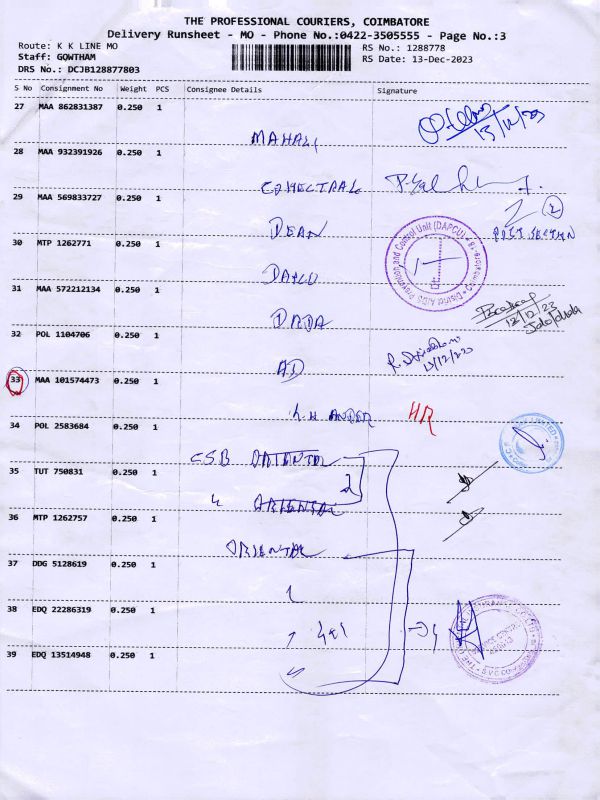 THE PROFESSIONAL COURIERS, COIMBATORE
Delivery Runsheet - MO - Phone No.:0422-3505555 - Page No.:3
Route: K K LINE MO
RS No.: 1288778
Staff: GOWTHAM
RS Date: 13-Dec-2023
DRS No.: DCJB128877803
S No Consignment No Weight PCS Consignee Details Signature
27 MAA 862831387 0.250 1
MAHALI
13/12/23
28 MAA 932391926 0.250 1
29 MAA 569833727 0.250 1
2
DEAN
POST SECTION
District AIDS Prevention and Control Unit (DAPCU)
30 MTP 1262771 0.250 1
31 MAA 572212134 0.250 1
13/12/23
32 POL 1104706 0.250 1
13/12/23
AD
33 MAA 101574473 0.250 1
HR
34 POL 2583684 0.250 1
CSB ORIENTAL
35 TUT 750831 0.250 1
ORIENTAL
36 MTP 1262757 0.250 1
ORIENTAL
37 DDG 5128619 0.250 1
38 EDQ 22286319 0.250 1
39 EDQ 13514948 0.250 1